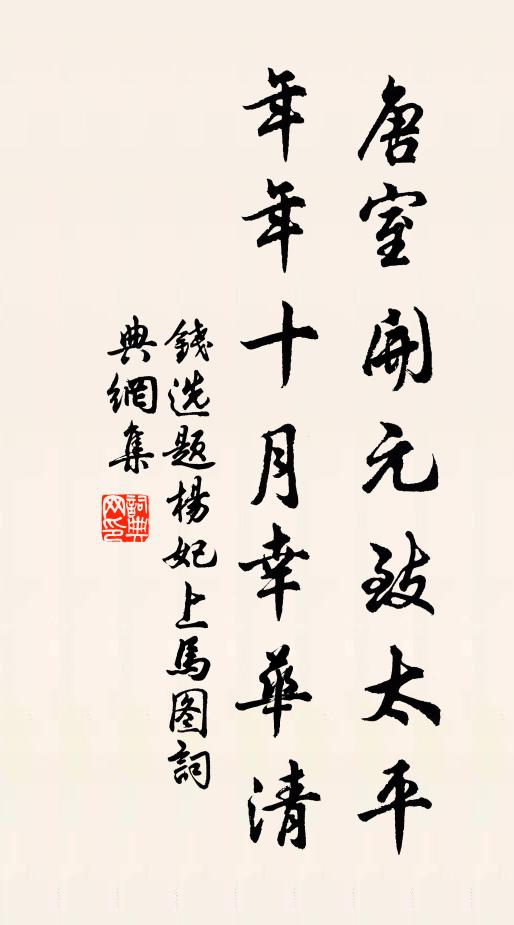 唐室開元致太平
年年十月幸華清
錢选題楊妃上馬图詞
典網集
詞典网印